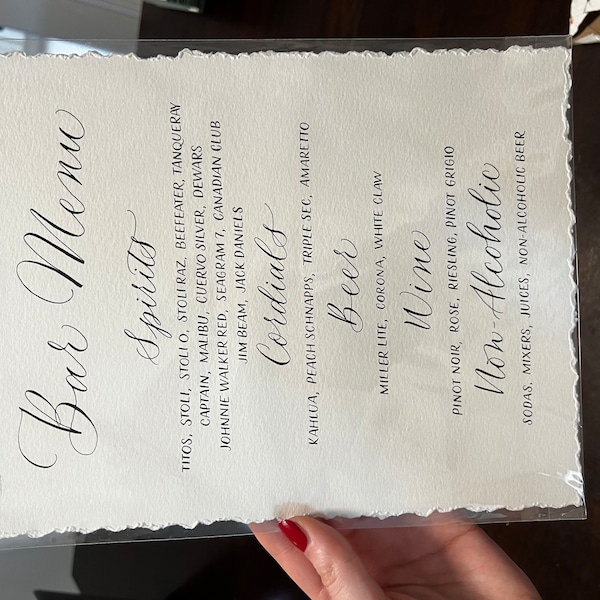 Bar Menu
Spirits
TITOS, STOLI, STOLI O, STOLI RAZ, BEEFEATER, TANQUERAY
CAPTAIN, MALIBU, CUERVO SILVER, DEWARS
JOHNNIE WALKER RED, SEAGRAM 7, CANADIAN CLUB
JIM BEAM, JACK DANIELS
Cordials
KAHLUA, PEACH SCHNAPPS, TRIPLE SEC, AMARETTO
Beer
MILLER LITE, CORONA, WHITE CLAW
Wine
PINOT NOIR, ROSE, RIESLING, PINOT GRIGIO
Non-Alcoholic
SODAS, MIXERS, JUICES, NON-ALCOHOLIC BEER